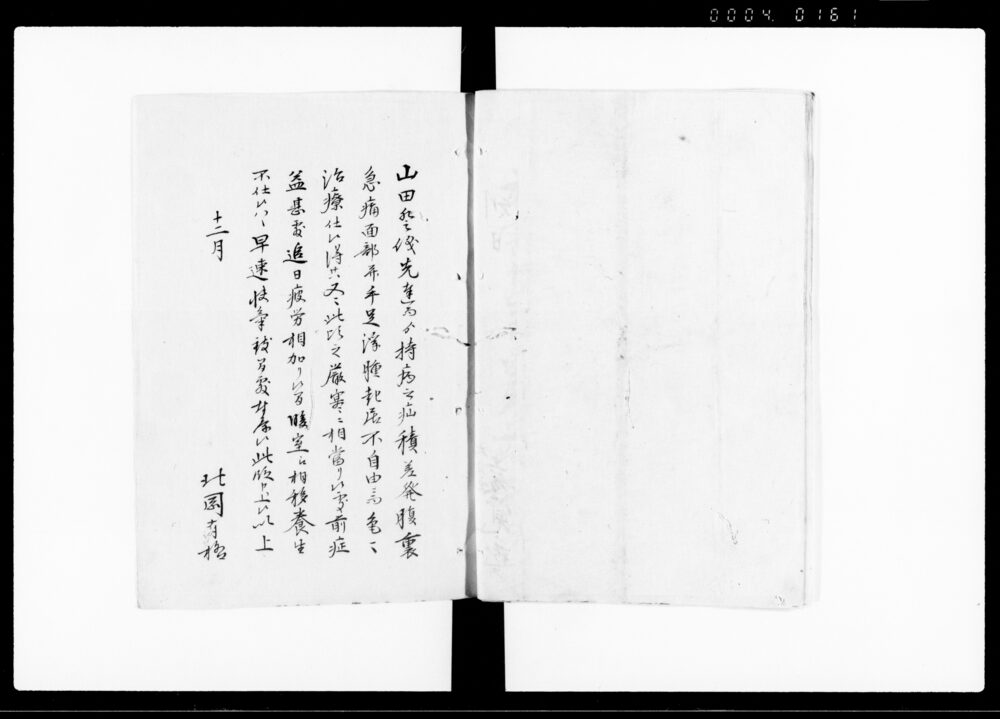 0004 0161
山田 儀先達而より持病之疝積差発腹裏
急痛面部并手足浮腫起居不自由ニ而色々
治療仕候得共又々此比之厳寒ニ相當り候哉前症
益甚敷追日疲労相加り候間暖室に相移養生
不仕候ハヽ早速快気難 奉存候此段申上候以上
十二月
北岡